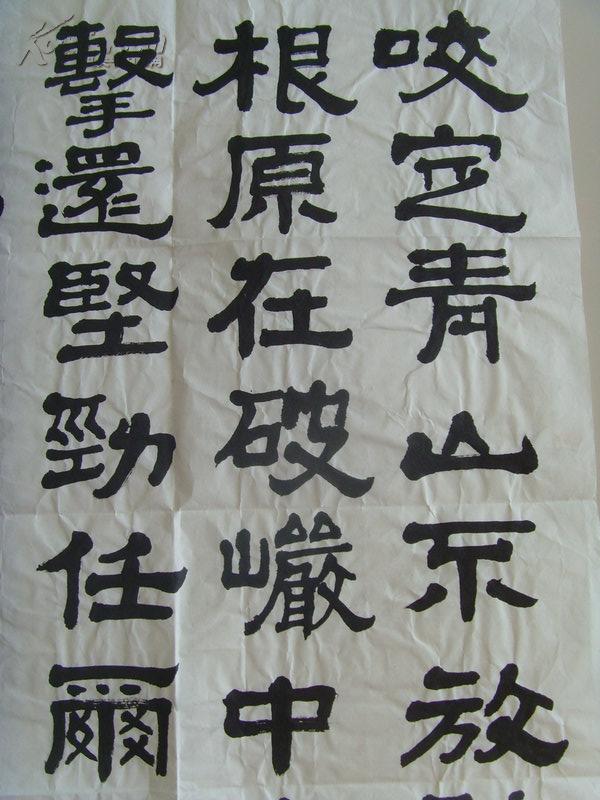 咬定青山不放
根原在破巗中
擊還堅勁任爾